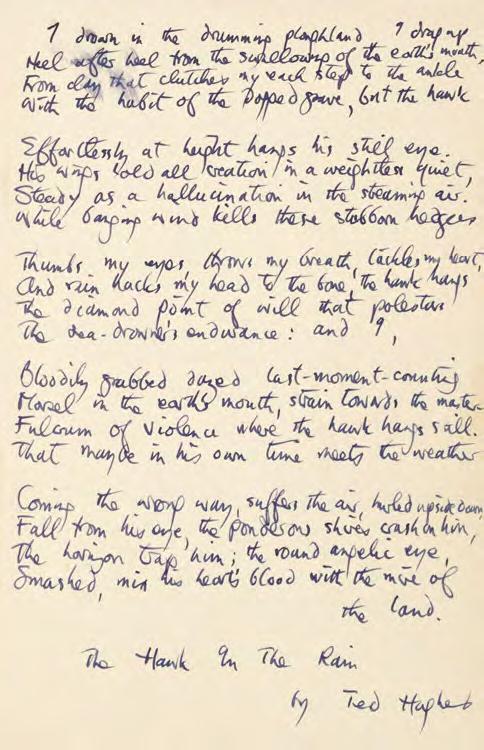 I drown in the drumming ploughland I drag up
Heel after heel from the swallowing of the earth's mouth,
From clay that clutches my each step to the ankle
With the habit of the dogged grave, but the hawk
Effortlessly at height hangs his still eye.
His wings hold all creation in a weightless quiet,
Steady as a hallucination in the steaming air.
While banging wind kills these stubborn hedges
Thumbs my eyes, throws my breath, tackles my heart,
And rain hacks my head to the bone, the hawk hangs
The diamond point of will that polestars
The sea-drowner's endurance: and I,
Bloodily grabbed dazed last-moment-counting
Morsel in the earth's mouth, strain towards the master-
Fulcrum of violence where the hawk hangs still.
That maybe in his own time meets the weather
Coming the wrong way, suffers the air, hurled upside down,
Fall from his eye, the ponderous shires crash on him,
The horizon trap him; the round angelic eye,
Smashed, mix his heart's blood with the mire of
the land.
The Hawk In The Rain
by Ted Hughes